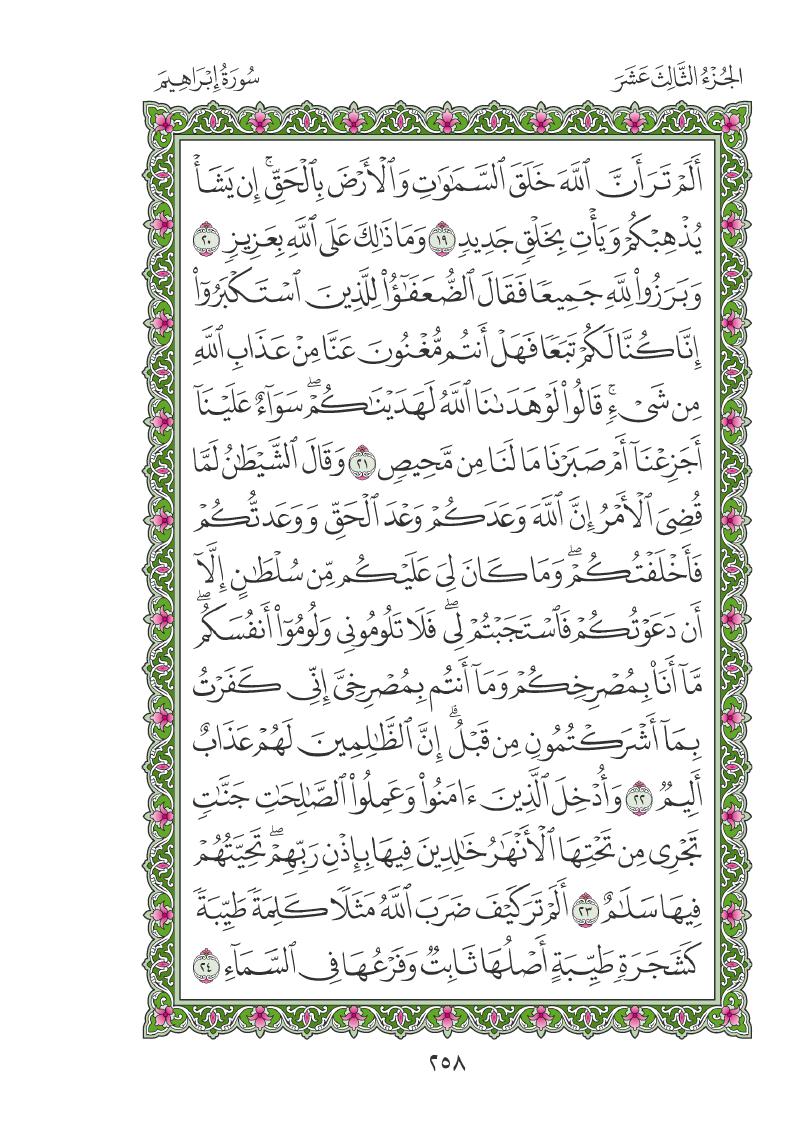 الجُزْءُ الثَّالِثَ عَشَرَ
سُورَةُ إِبْرَاهِيمَ
أَلَمْ تَرَ أَنَّ ٱللَّهَ خَلَقَ ٱلسَّمَٰوَٰتِ وَٱلْأَرْضَ بِٱلْحَقِّۚ إِن يَشَأْ
يُذْهِبْكُمْ وَيَأْتِ بِخَلْقٍ جَدِيدٍ ١٩ وَمَا ذَٰلِكَ عَلَى ٱللَّهِ بِعَزِيزٍ ٢٠
وَبَرَزُوا۟ لِلَّهِ جَمِيعًا فَقَالَ ٱلضُّعَفَٰٓؤُا۟ لِلَّذِينَ ٱسْتَكْبَرُوٓا۟
إِنَّا كُنَّا لَكُمْ تَبَعًا فَهَلْ أَنتُم مُّغْنُونَ عَنَّا مِنْ عَذَابِ ٱللَّهِ
مِن شَىْءٍۚ قَالُوا۟ لَوْ هَدَىٰنَا ٱللَّهُ لَهَدَيْنَٰكُمْۖ سَوَآءٌ عَلَيْنَآ
أَجَزِعْنَآ أَمْ صَبَرْنَا مَا لَنَا مِن مَّحِيصٍ ٢١ وَقَالَ ٱلشَّيْطَٰنُ لَمَّا
قُضِىَ ٱلْأَمْرُ إِنَّ ٱللَّهَ وَعَدَكُمْ وَعْدَ ٱلْحَقِّ وَوَعَدتُّكُمْ
فَأَخْلَفْتُكُمْۖ وَمَا كَانَ لِىَ عَلَيْكُم مِّن سُلْطَٰنٍ إِلَّآ
أَن دَعَوْتُكُمْ فَٱسْتَجَبْتُمْ لِىۖ فَلَا تَلُومُونِى وَلُومُوٓا۟ أَنفُسَكُمۖ
مَّآ أَنَا۠ بِمُصْرِخِكُمْ وَمَآ أَنتُم بِمُصْرِخِىَّ إِنِّى كَفَرْتُ
بِمَآ أَشْرَكْتُمُونِ مِن قَبْلُۗ إِنَّ ٱلظَّٰلِمِينَ لَهُمْ عَذَابٌ
أَلِيمٌ ٢٢ وَأُدْخِلَ ٱلَّذِينَ ءَامَنُوا۟ وَعَمِلُوا۟ ٱلصَّٰلِحَٰتِ جَنَّٰتٍ
تَجْرِى مِن تَحْتِهَا ٱلْأَنْهَٰرُ خَٰلِدِينَ فِيهَا بِإِذْنِ رَبِّهِمْۖ تَحِيَّتُهُمْ
فِيهَا سَلَٰمٌ ٢٣ أَلَمْ تَرَ كَيْفَ ضَرَبَ ٱللَّهُ مَثَلًا كَلِمَةً طَيِّبَةً
كَشَجَرَةٍ طَيِّبَةٍ أَصْلُهَا ثَابِتٌ وَفَرْعُهَا فِى ٱلسَّمَآءِ ٢٤
٢٥٨